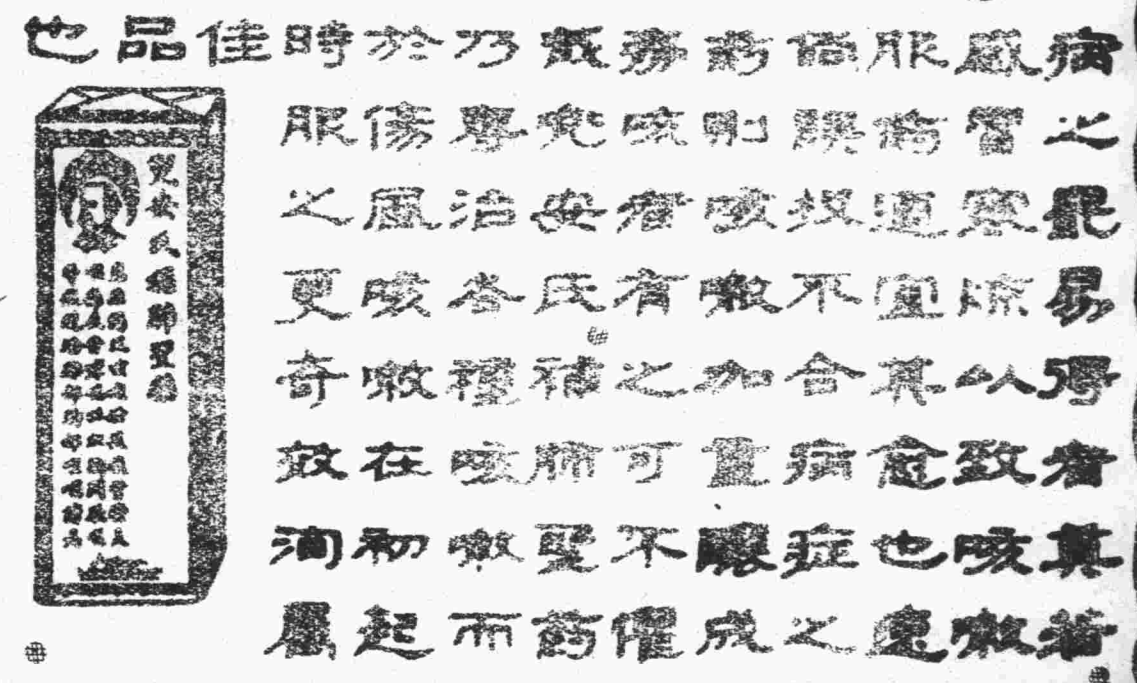 病之最易得者莫若
感冒寒涼以致咳嗽
服药適宜其愈也速
倘誤投不合病症之
药則咳嗽加重釀成
癆咳者有之可不懼
哉兜安氏補肺聖药
乃專治各種咳嗽而
於傷風咳嗽在初起
時服之更奇效洵屬
佳品也
兜安氏補肺聖藥